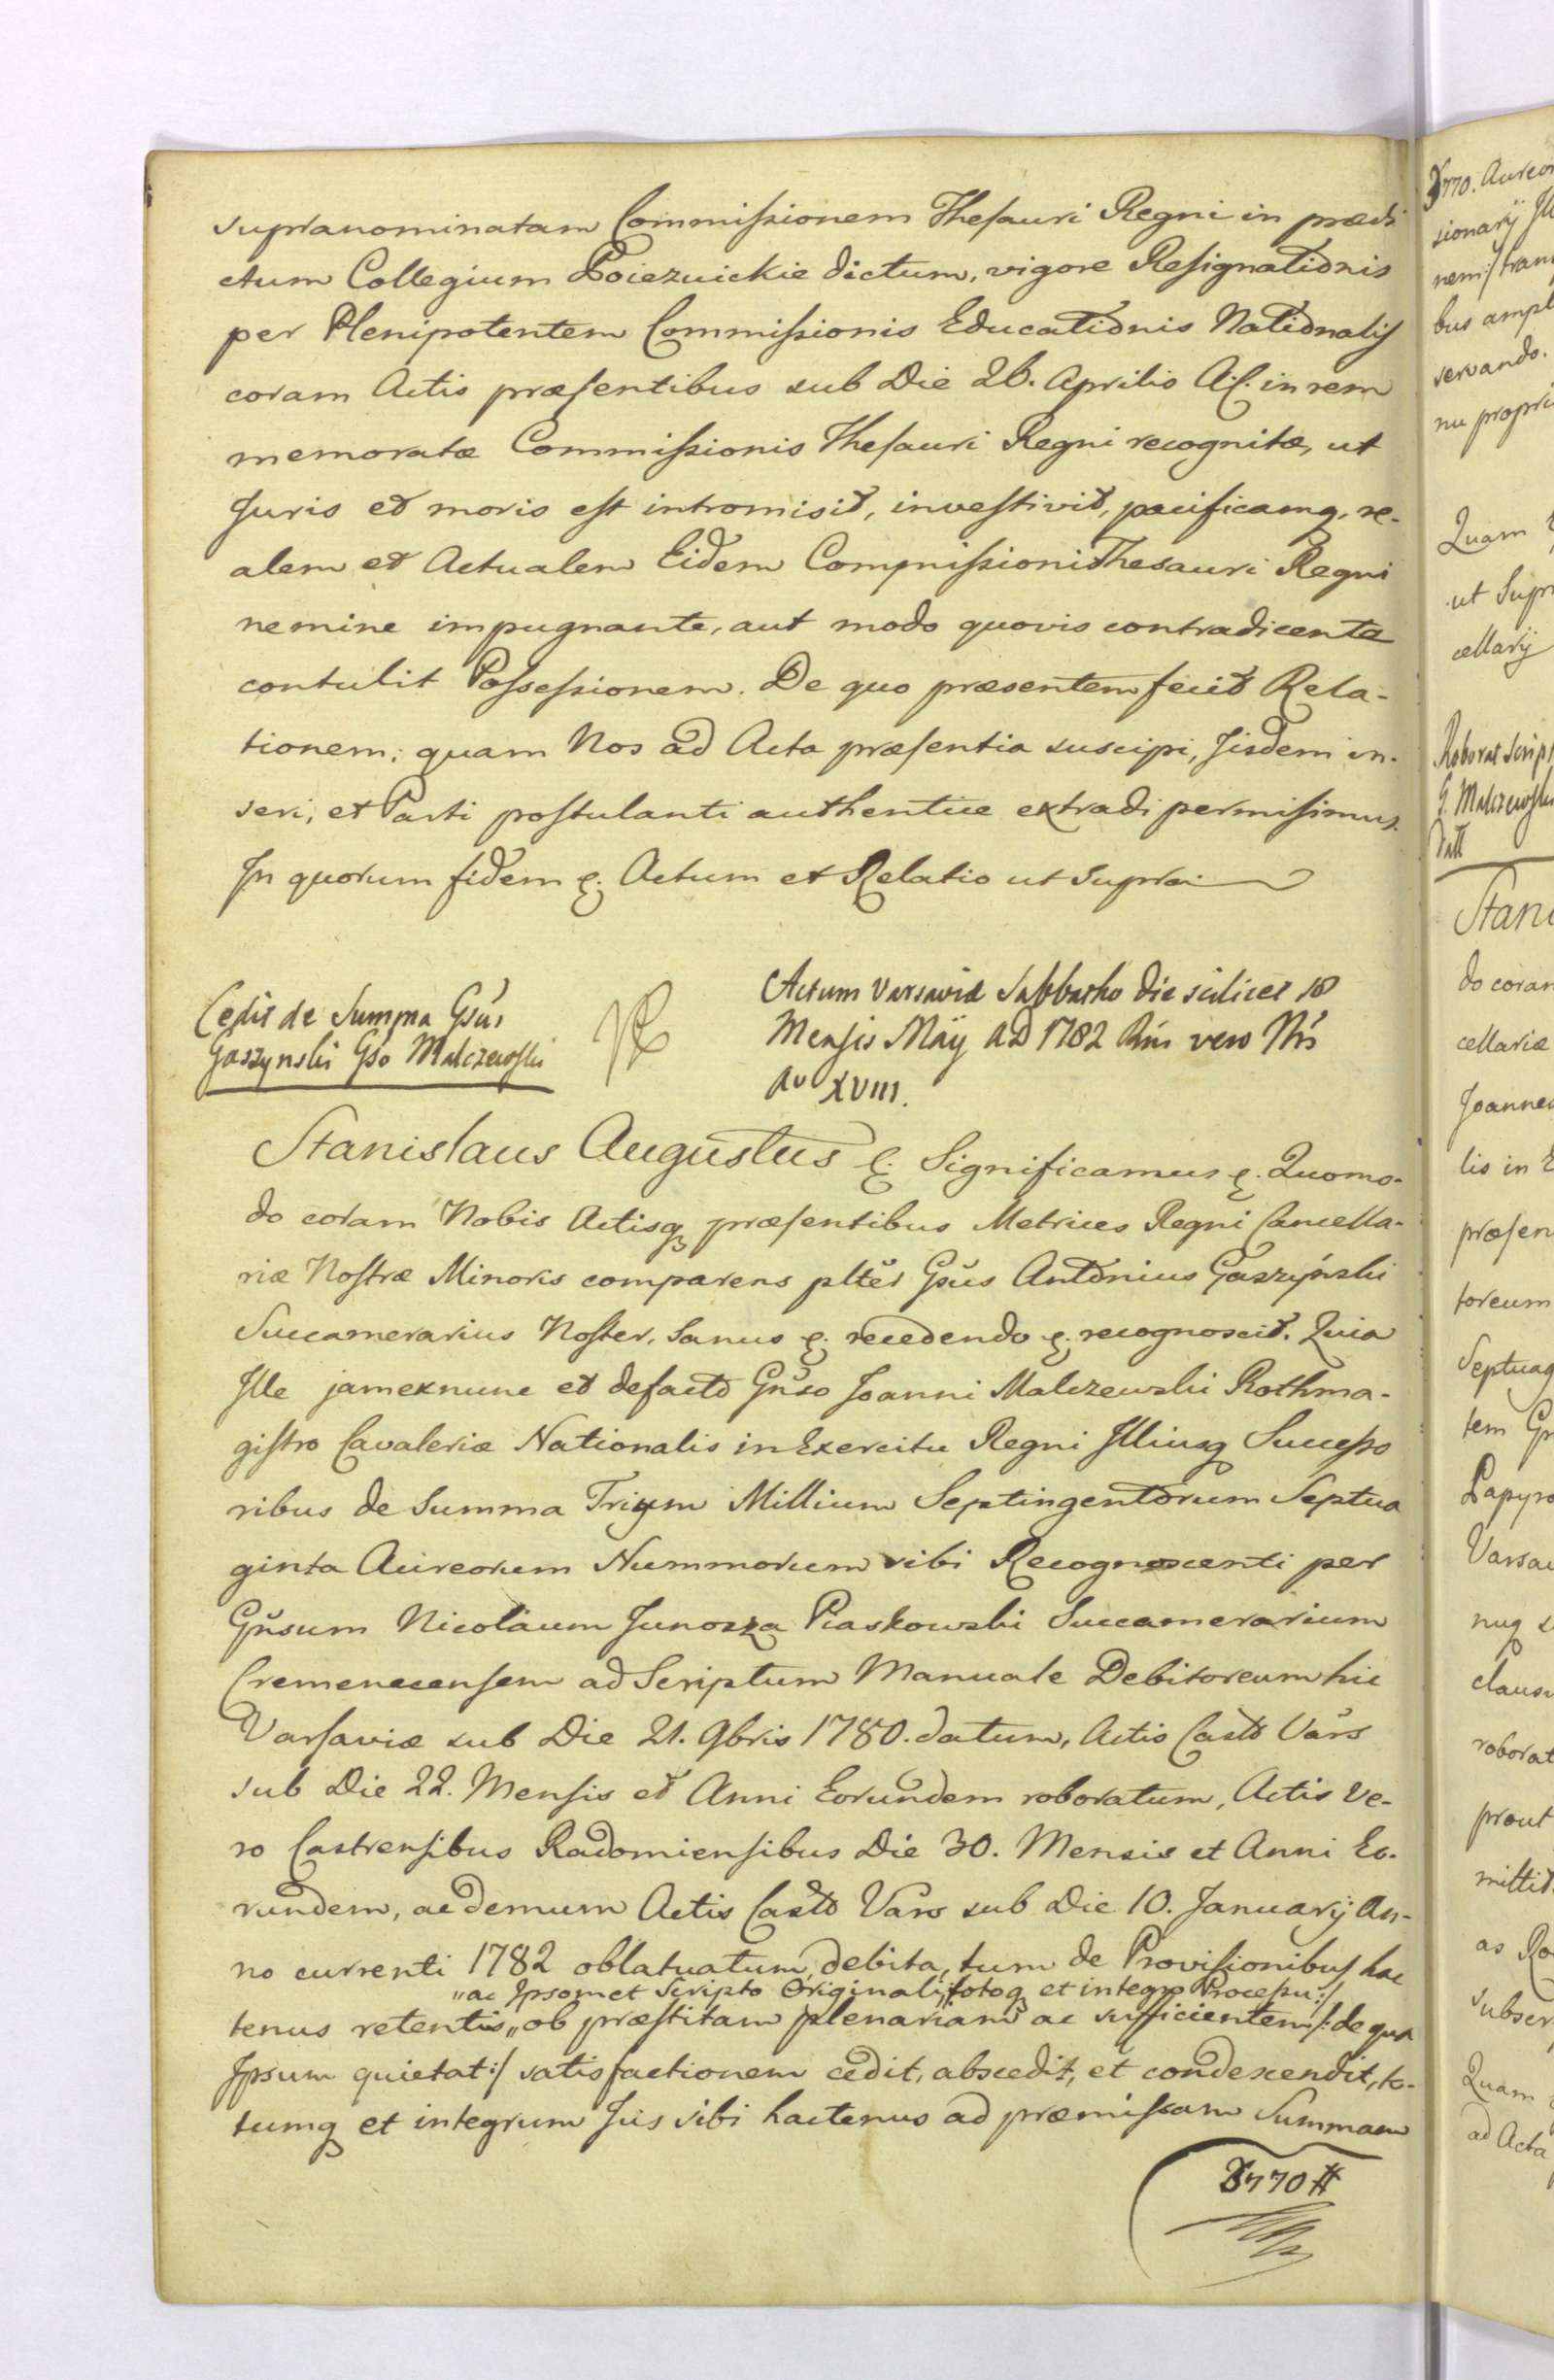 supranominatam Commissionem Thesauri Regni in prædi
ctum Collegium Poiezuickie dictum, vigore Resignationis
per Plenipotentem Commissionis Educationis Nationalis
coram Actis præsentibus sub Die 26. Aprilis A. C. in rem
memoratæ Commissionis Thesauri Regni recognitæ, ut
Juris et moris est intromisit, investivit, pacificamq, re-
alem et Actualem Eidem Commissioni Thesauri Regni
nemine impugnante, aut modo quovis contradicente
contulit Possessionem. De quo præsentem fecit Rela-
tionem; quam Nos ad Acta præsentia suscipi, Jisdem in-
seri, et Parti postulanti authentice extradi permisimus.
In quorum fidem &. Actum et Relatio ut supra
Cedit de Summa Gsús
Gaszynski Gso Malczewski
Actum Varsaviæ Sabbatho die scilicet 18
Mensis Maÿ AD 1782 Rni vero Nri
Ao XVIII.
Stanislaus Augustus &. Significamus &. Quomo-
do coram Nobis Actisq præsentibus Metrices Regni Cancella-
riæ Nostræ Minoris comparens pltĕr Gsŭs Antonius Gaszyński
Succamerarius Noster, Sanus &. recedendo &. recognoscit. Quia
Ille jamexnunc et defacto Gnŭso Joanni Malczewski Rothma-
gistro Cavaleriæ Nationalis in Exercitu Regni Illiusq Successo
ribus de Summa Trium Millium Septingentorum Septua
ginta Aureorum Nummorum sibi Recognoscenti per
Gnŭsum Nicolaum Junosza Piaskowski Succamerarium
Cremenecensem ad Scriptum Manuale Debitoreum hic
Varsaviæ sub Die 21. 9bris 1780. datum, Actis Casto Vars
sub Die 22. Mensis et Anni Eorundem roboratum, Actis Ve-
ro Castrensibus Radomiensibus Die 30. Mensis et Anni Eo-
rundem, ac demum Actis Casto Vars sub Die 10. Januarÿ An-
no currenti 1782 oblatuatum, debita, tum de Provisionibus hac
„ac Ipsomet Scripto Originali, totoq et integro Processu:/
tenus retentis„ ob præstitam plenariam ac sufficientem /:de qua
Ipsum quietat:/ satisfactionem cedit, abscedit, et condescendit, to-
tumq et integrum Jus sibi hactenus ad præmissam Summam
3770 #